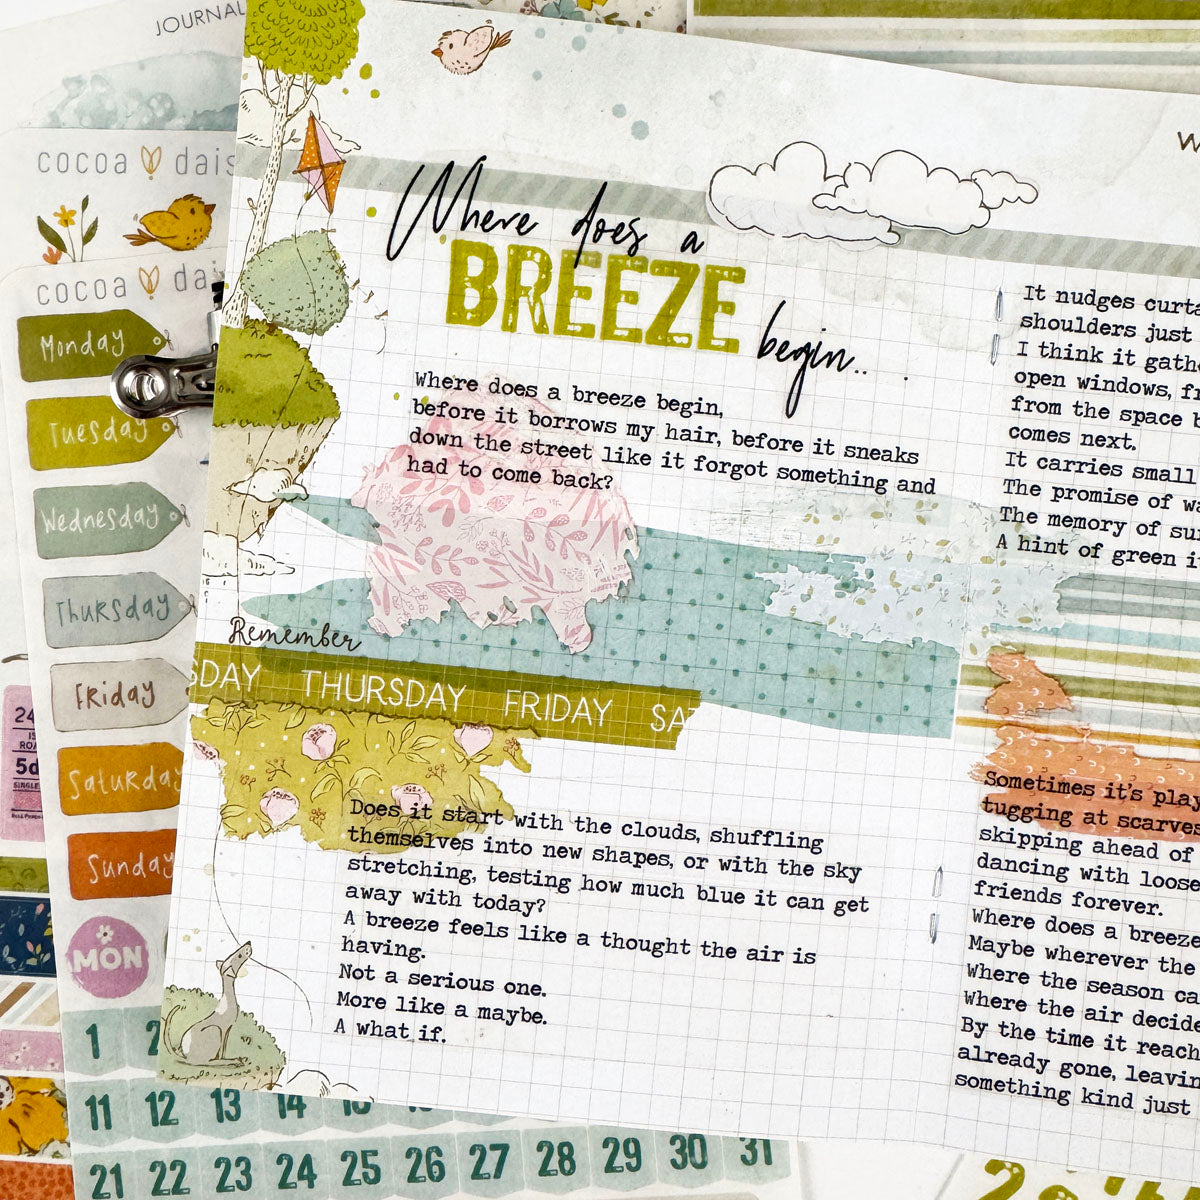 JOURNAL
cocoa dais
cocoa dai
Monday
Tuesday
Wednesday
Thursday
Friday
Saturday
Sunday
MON
24
5d
1 2
11 12 13 14
21 22 23 24 25 26 27 28 29 30 31
Where does a
BREEZE
begin...
Where does a breeze begin,
before it borrows my hair, before it sneaks
down the street like it forgot something and
had to come back?
Remember
SDAY THURSDAY FRIDAY SAT
Does it start with the clouds, shuffling
themselves into new shapes, or with the sky
stretching, testing how much blue it can get
away with today?
A breeze feels like a thought the air is
having.
Not a serious one.
More like a maybe.
A what if.
W
It nudges curta
shoulders just
I think it gath
open windows, fr
from the space b
comes next.
It carries small
The promise of wa
The memory of su
A hint of green i
Sometimes it's play
tugging at scarves
skipping ahead of
dancing with loose
friends forever.
Where does a breeze
Maybe wherever the
Where the season ca
Where the air decide
By the time it reach
already gone, leavin
something kind just